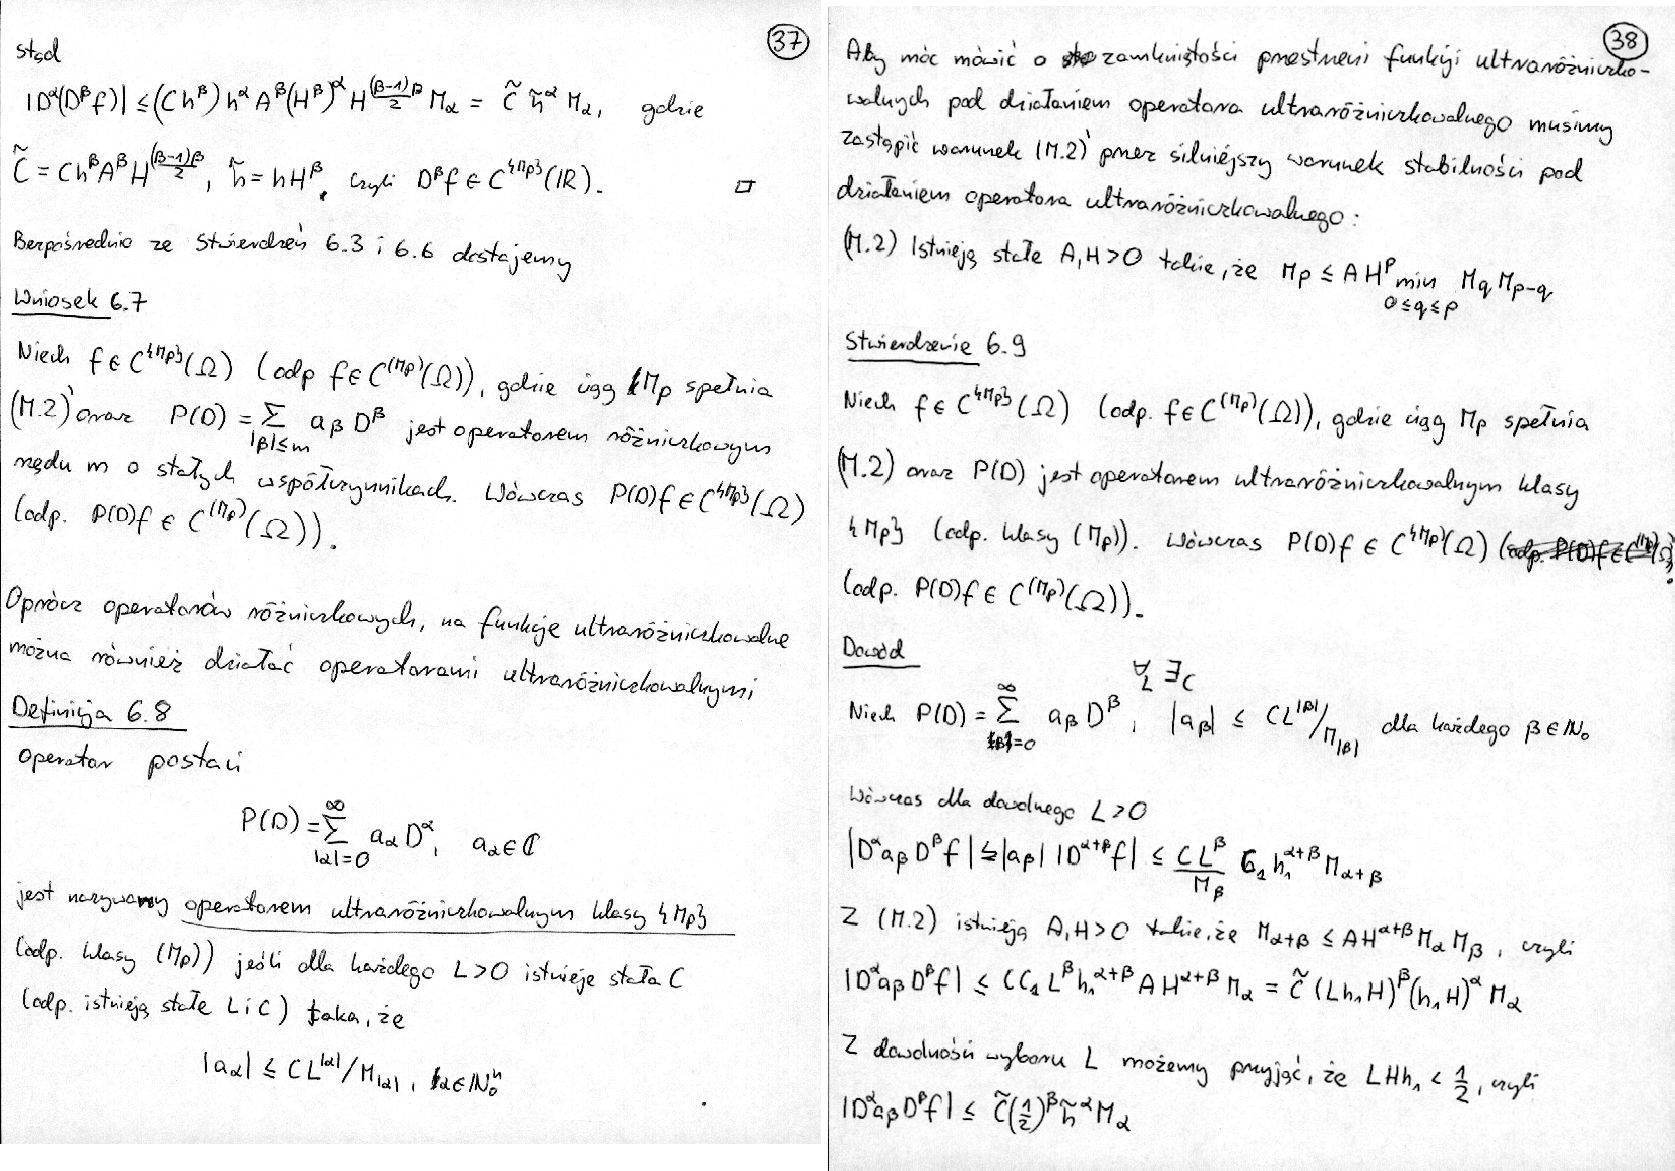 37
stąd
|D^α(D^β f)| ≤ (C h^β) h^α A^β (H^β)^α H^{(β-1)β/2} M_α = C̃ h̃^α M_α, gdzie
C̃ = C h^β A^β H^{(β-1)β/2}, h̃ = hH^β, czyli D^β f ∈ C^{{M_p}}(ℝ). □
Bezpośrednio ze Stwierdzeń 6.3 i 6.6 dostajemy
Wniosek 6.7
Niech f ∈ C^{{M_p}}(Ω) (odp f ∈ C^{(M_p)}(Ω)), gdzie ciąg M_p spełnia
(M.2)' oraz P(D) = Σ_{|β|≤m} a_β D^β jest operatorem różniczkowym
rzędu m o stałych współczynnikach. Wówczas P(D)f ∈ C^{{M_p}}(Ω)
(odp. P(D)f ∈ C^{(M_p)}(Ω)).
Oprócz operatorów różniczkowych, na funkcje ultraróżniczkowalne
można również działać operatorami ultraróżniczkowalnymi
Definicja 6.8
Operator postaci
P(D) = Σ_{|α|=0}^∞ a_α D^α, a_α ∈ ℂ
jest nazywany operatorem ultraróżniczkowalnym klasy {M_p}
(odp. klasy (M_p)) jeśli dla każdego L>0 istnieje stała C
(odp. istnieją stałe L i C) taka, że
|a_α| ≤ C L^{|α|}/M_{|α|}, α ∈ ℕ_0^n
38
Aby móc mówić o zamkniętości przestrzeni funkcji ultraróżniczko-
walnych pod działaniem operatora ultraróżniczkowalnego musimy
zastąpić warunek (M.2)' przez silniejszy warunek stabilności pod
działaniem operatora ultraróżniczkowalnego:
(M.2) Istnieją stałe A,H>0 takie, że M_p ≤ A H^p min_{0≤q≤p} M_q M_{p-q}
Stwierdzenie 6.9
Niech f ∈ C^{{M_p}}(Ω) (odp. f ∈ C^{(M_p)}(Ω)), gdzie ciąg M_p spełnia
(M.2) oraz P(D) jest operatorem ultraróżniczkowalnym klasy
{M_p} (odp. klasy (M_p)). Wówczas P(D)f ∈ C^{{M_p}}(Ω)
(odp. P(D)f ∈ C^{(M_p)}(Ω)).
Dowód
Niech P(D) = Σ_{|β|=0}^∞ a_β D^β, ∀_L ∃_C |a_β| ≤ C L^{|β|}/M_{|β|} dla każdego β ∈ ℕ_0
Wówczas dla dowolnego L>0
|D^α a_β D^β f| ≤ |a_β| |D^{α+β} f| ≤ C L^β/M_β C_1 h_1^{α+β} M_{α+β}
Z (M.2) istnieją A,H>0 takie, że M_{α+β} ≤ A H^{α+β} M_α M_β, czyli
|D^α a_β D^β f| ≤ C C_1 L^β h_1^{α+β} A H^{α+β} M_α = C̃ (L h_1 H)^β (h_1 H)^α M_α
Z dowolności wyboru L możemy przyjąć, że L H h_1 < 1/2, czyli
|D^α a_β D^β f| ≤ C̃ (1/2)^β h̃^α M_α